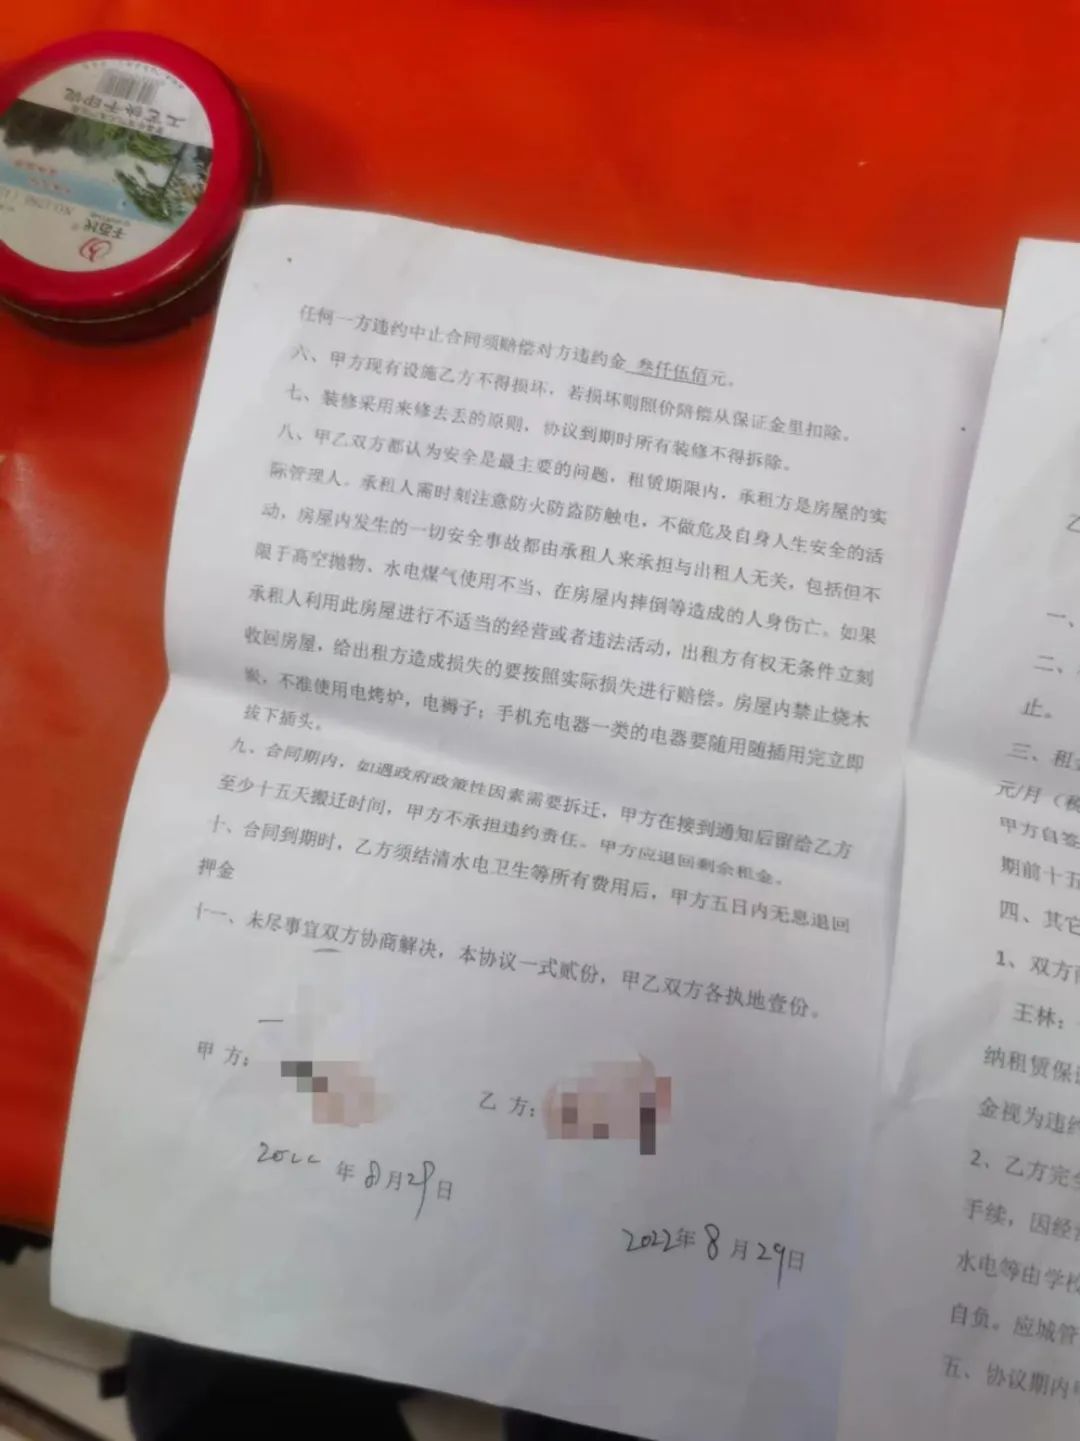 工艺快干印泥
千百代
任何一方违约中止合同须赔偿对方违约金 叁仟伍佰元。
六、甲方现有设施乙方不得损坏，若损坏则照价陪偿从保证金里扣除。
七、装修采用来修去丢的原则，协议到期时所有装修不得拆除。
八、甲乙双方都认为安全是最主要的问题，租赁期限内，承租方是房屋的实
际管理人。承租人需时刻注意防火防盗防触电，不做危及自身人生安全的活
动，房屋内发生的一切安全事故都由承租人来承担与出租人无关，包括但不
限于高空抛物、水电煤气使用不当、在房屋内摔倒等造成的人身伤亡。如果
承租人利用此房屋进行不适当的经营或者违法活动，出租方有权无条件立刻
收回房屋，给出租方造成损失的要按照实际损失进行赔偿。房屋内禁止烧木
炭，不准使用电烤炉，电褥子；手机充电器一类的电器要随用随插用完立即
拔下插头。
九、合同期内，如遇政府政策性因素需要拆迁，甲方在接到通知后留给乙方
至少十五天搬迁时间，甲方不承担违约责任。甲方应退回剩余租金。
十、合同到期时，乙方须结清水电卫生等所有费用后，甲方五日内无息退回
押金
十一、未尽事宜双方协商解决，本协议一式贰份，甲乙双方各执地壹份。
甲 方：
乙 方：
2022年8月29日
2022年8月29日
乙
一、
二、
止。
三、租金
元/月（税
甲方自签
期前十五
四、其它
1、双方
王林：
纳租赁保证
金视为违约
2、乙方完全
手续，因经营
水电等由学校
自负。应城管
五、协议期内